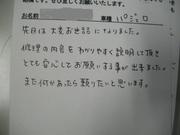 願いします。ぜひ差しでお願いいたします。
お名前 車種 パジェロ
先日は大変お世話になりました。
修理の内容をわかりやすく説明して頂き
とても安心してお願いする事が出来ました。
また何かあったら頼りたいと思います。